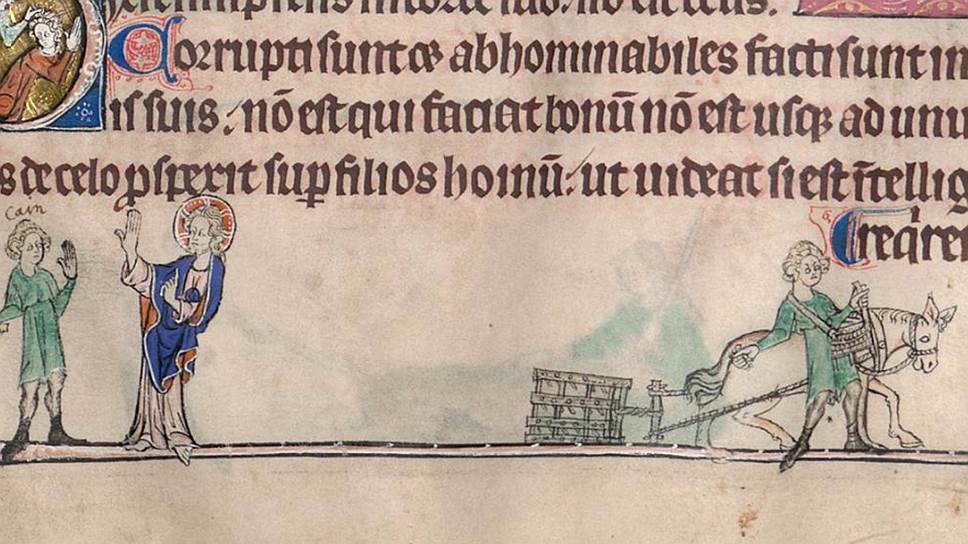 Corrupti sunt et abhominabiles facti sunt in
is suis. nō est qui faciat bonū nō est usq; ad unu
s de celo ꝓspexit suꝑ filios hoinū: ut uideat si est ītellig
Cain